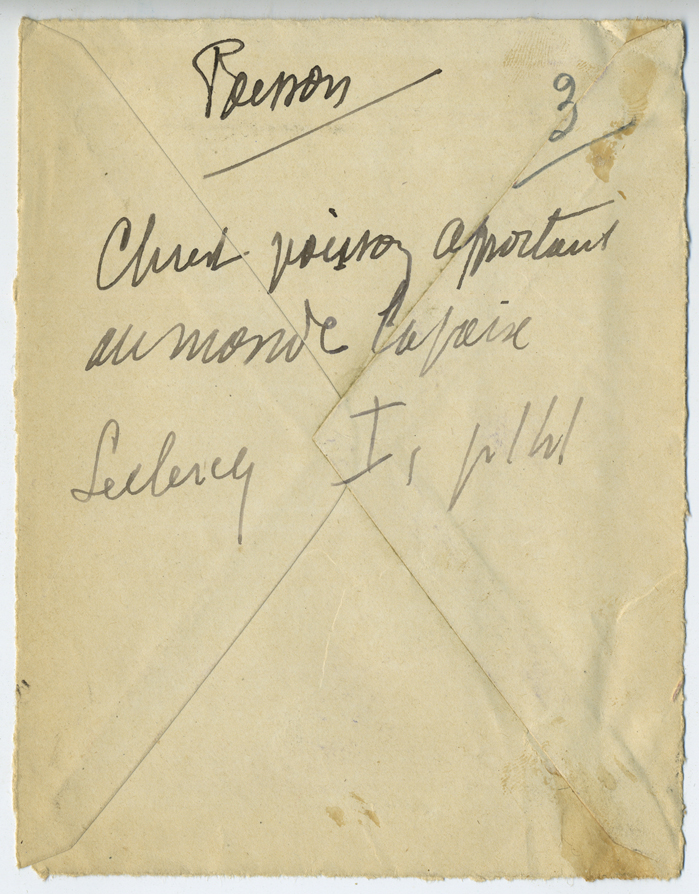 Poisson
3
Christ poisson apportant
au monde la paix
Leclercq I, p